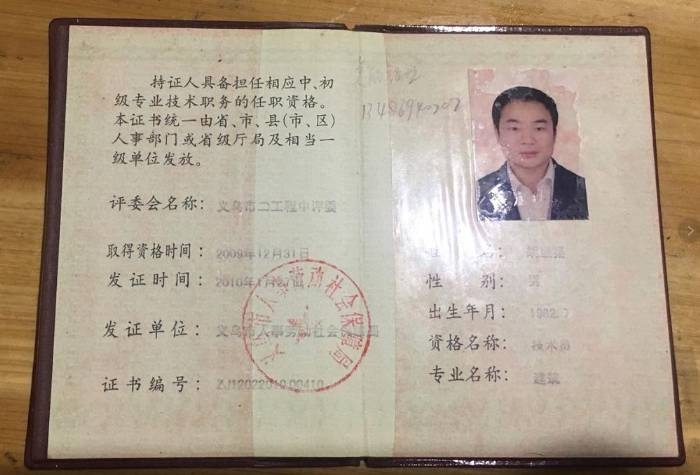 持证人具备担任相应中、初
级专业技术职务的任职资格。
本证书统一由省、市、县(市、区)
人事部门或省级厅局及相当一
级单位发放。
评委会名称：义乌市二工程中评委
取得资格时间：2009年12月31日
发证时间：
发证单位：义乌市人事劳动社会保障局
证书编号：
义乌市人事劳动社会保障局
名：
性别：男
出生年月：1982.7
资格名称：技术员
专业名称：建筑